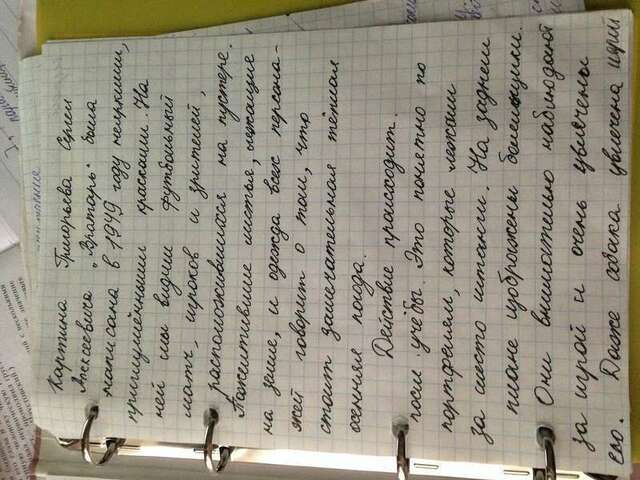 Картина Григорьева Сергея
Алексеевича „Вратарь" была
написана в 1949 году неяркими,
приглушёнными красками. На
ней мы видим футбольный
матч, игроков и зрителей,
расположившихся на пустыре.
Пожелтившие листья, лежащие
на земле, и одежда всех персона-
жей говорит о том, что
стоит замечательная тёплая
осенняя погода.
Действие происходит
после учёбы. Это понятно по
портфелям, которые лежат
за место штанги. На заднем
плане изображены болельщики.
Они внимательно наблюдают
за игрой и очень увлечены
ею. Даже собака увлечена игрой